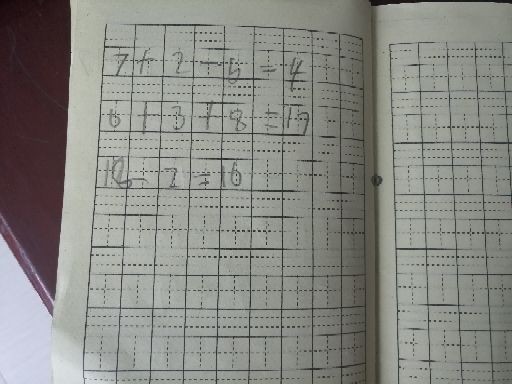 7+2-5=4
6+3+8=17
18-2=16